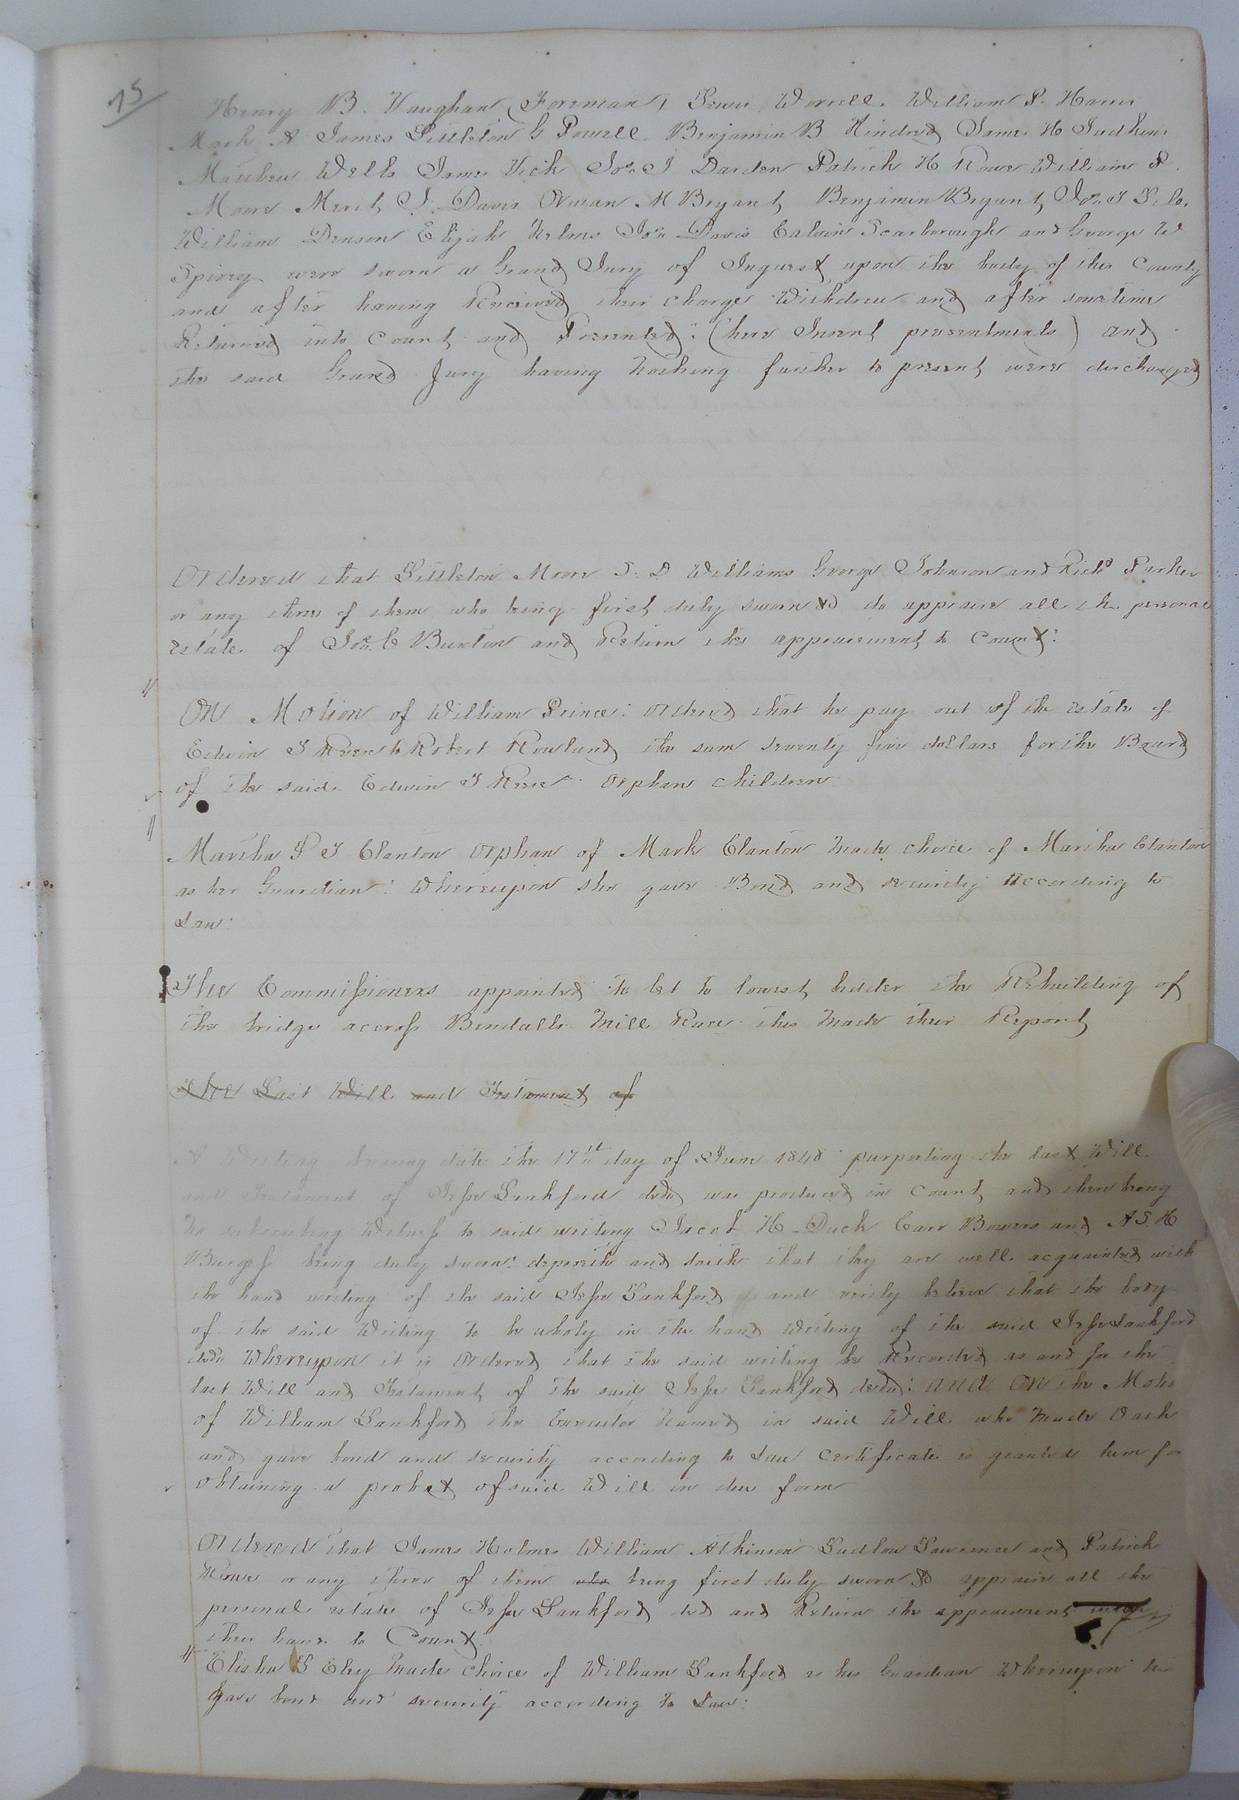 75
Henry B. Vaughan (Foreman) Worrell. William P.
Mark A James Littleton G Powell Benjamin B Kindred James H Judkins
Mathew Wells James Vick Jno. J Darden Patrick H Rowe William
Moore J. Davis M Bryant Benjamin Bryant Jno. T
William Denson Elijah Helms Jno Davis Calvin Scarborough and George W
Spivey were sworn a Grand Jury of Inquest upon the body of this County
and after having Received their charge Withdrew and after sometime
Returned into Court and Presented: (here Insert presentments) and
the said Grand Jury having Nothing further to present were discharged
Ordered that Littleton Moore S. D Williams George Johnson and Richd Parker
or any three of them who being first duly sworn do appraise all the personal
estate of C Buxton and Return the appraisement to Court:
On Motion of William Prince: ordered that he pay out of the estate of
Edwin T Robert Rowland the sum seventy five dollars for the Board
of the said Edwin T orphan children
Martha T Clanton orphan of Mark Clanton Made choice of Martha Clanton
as her Guardian: Whereupon she gave Bond and security According to
Law:
The Commissioners appointed to let to lowest bidder the Rebuilding of
the bridge accross Mill Race this Made their Report
The Last Will and Testament of
A Writing bearing date the 17th day of June 1848 purporting the last Will
and Testament of Jesse Lankford decd was produced in Court and there being
No subscribing Witness to said writing Jacob H Duck Carr Bowers and A S H
Burgess being duly sworn: deposeth and saith that they are well acquainted with
the hand writing of the said Jesse Lankford and verily believe that the body
of the said Writing to be wholy in the hand Writing of the said Jesse Lankford
decd Whereupon it is Ordered that the said writing be Recorded as and for the
last Will and Testament of the said Jesse Lankford decd: and on the Motio
of William Lankford the Executor Named in said Will who Made Oath
and gave bond and security according to Law Certificate is granted him for
Obtaining a probat of said Will in due form
Ordered that James Holmes William Atkinson Ludlow Lawrence and Patrick
Rowe or any three of them who being first duly sworn do appraise all the
personal estate of Jesse Lankford decd and Return the appraisement
their hands to Court
Elisha L Eley Made choice of William Lankford as his Guardian Whereupon he
gave bond and security according to Law: